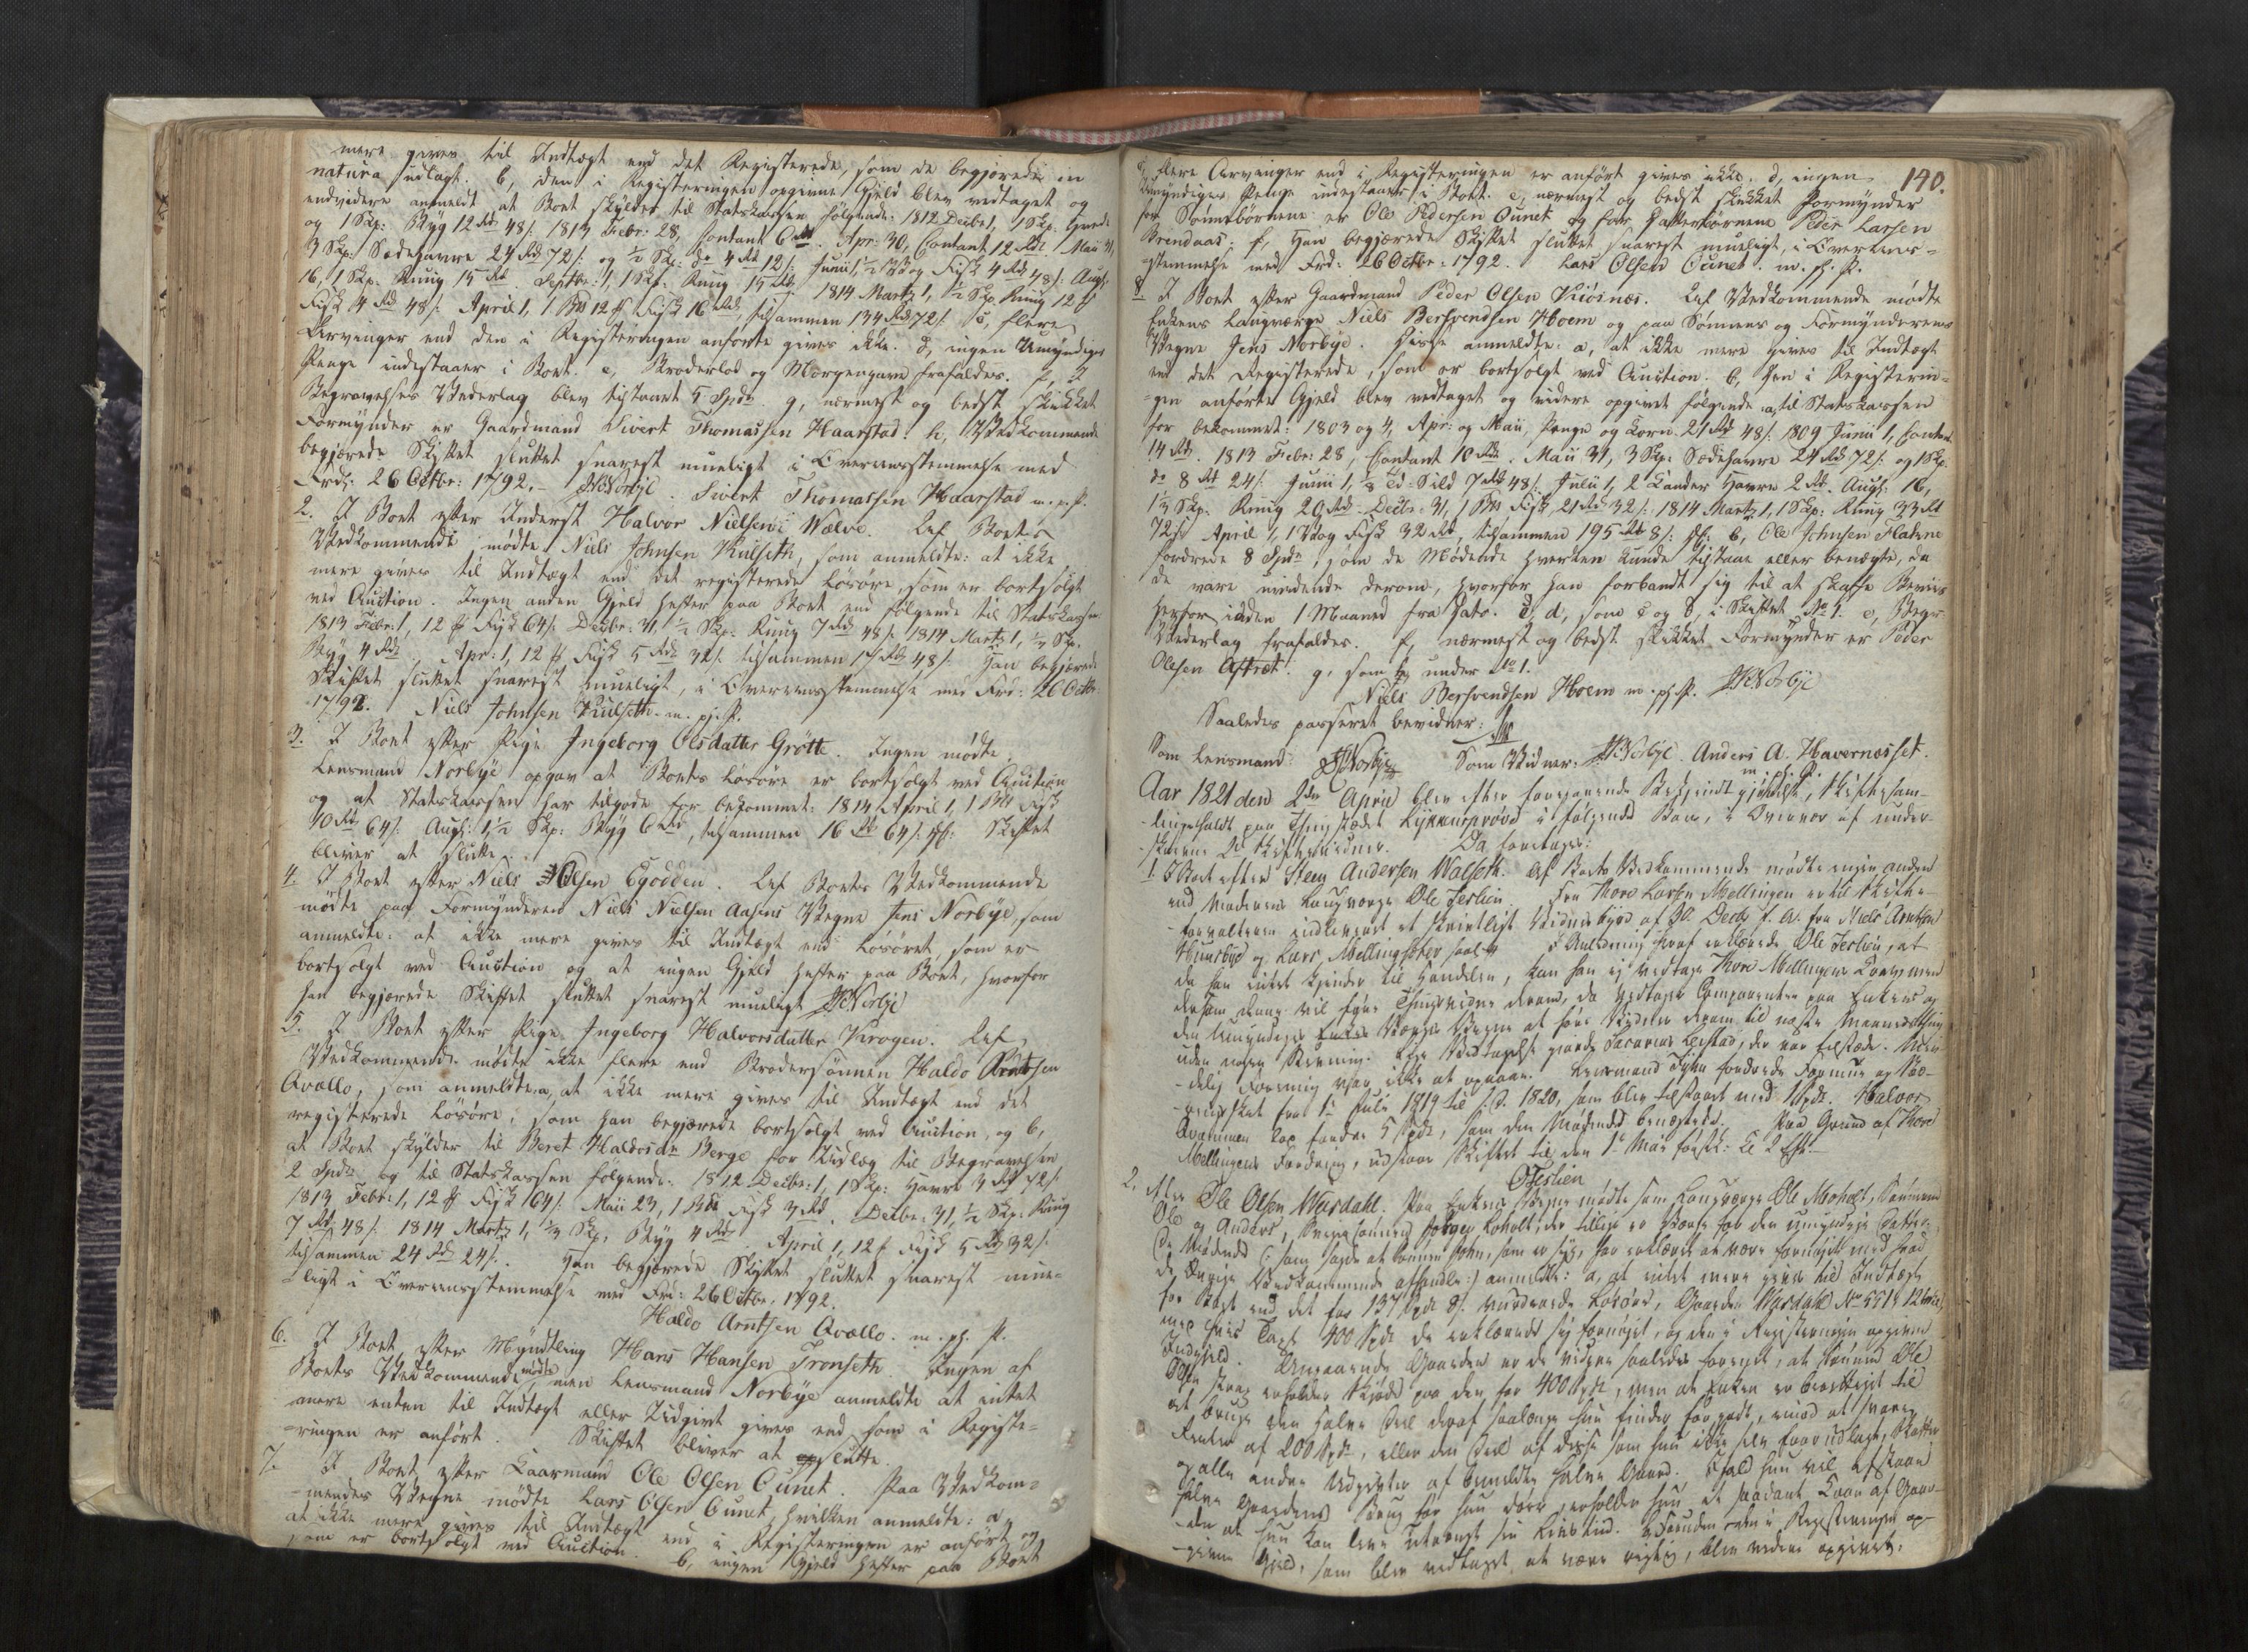 mere gives til Indtægt end det Registerede, som de begjærede in
natura udlagt. b, den i Registeringen opgivne Gjeld blev vedtaget og
endvidere anmeldt at Boet skylder til Statskassen følgende: 1812 Decbr 1, 1 Skp.
og 1 Skp: Byg 12 Rd 48 s. 1813 Febr: 28, Contant 6 Rd. Apr: 30, Contant 12 Rd. Maii 31,
3 Skp: Sædehavre 24 Rd 72 s. og ½ Skp: do 4 Rd 12 s. Junii 1, ½ Vog Fisk 4 Rd 48 s. Aug:
16, 1 Skp. Rug 15 Rd. Septbr: 1, 1 Skp: Rug 15 Rd. 1814 Martz 1, ½ Skp Rug 12 ℔
Fisk 4 Rd 48 s. April 1, 1 Bv 12 ℔ Fisk 16 Rd, tilsammen 134 Rd 72 s. c, flere
Arvinger end den i Registeringen anførte gives ikke. d, ingen Umyndiges
Penge indestaaer i Boet. e, Broderlod og Morgengave frafaldes. f, I
Begravelses Vederlag blev tilstaaet 5 Spdr. g, nærmest og bedst skikket
Formynder er Gaardmand Sivert Thomassen Haarstad. h, Vedkommende
begjærede Skiftet sluttet snarest mueligt i Overeensstemmelse med
Frd: 26 Octbr: 1792. JNorbye. Sivert Thomassen Haarstad m.p.P.
2. I Boet efter Inderst Halvor Nielsen Wælve. Af Boets
Vedkommende mødte Niels Johnsen Kulseth, som anmeldte: at ikke
mere gives til Indtægt end det registerede Løsøre, som er bortsolgt
ved Auction. Ingen anden Gjeld hefter paa Boet end følgende til Statskassen
1813 Febr: 1, 12 ℔ Fisk 64 s. Decbr: 31, ½ Skp: Rug 7 Rd 48 s. 1814 Martz 1, ½ Skp.
Byg 4 Rd. Apr: 1, 12 ℔ Fisk 5 Rd 32 s. tilsammen 17 Rd 48 s. Han begjærede
Skiftet sluttet snarest mueligt, i Overeensstemmelse med Frd: 26 Octbr
1792. Niels Johnsen Kulseth. m. p. P.
3. I Boet efter Pige Ingeborg Olsdatter Grøtte. Ingen mødte.
Lensmand Norbye opgav at Boets Løsøre er bortsolgt ved Auction
og at Statskassen har tilgode for bekommet: 1814 April 1, 1 Bv Fisk
10 Rd 64 s. Aug: 1, ½ Skp: Byg 6 Rd, tilsammen 16 Rd 64 s. Skiftet
bliver at slutte.
4. I Boet efter Niels Olsen Egodden. Af Boets Vedkommende
mødte paa Formynderen Niels Nielsen Aasens Vegne Jens Norbye, som
anmeldte: at ikke mere gives til Indtægt end Løsøret, som er
bortsolgt ved Auction og at ingen Gjeld hefter paa Boet, hvorfor
han begjærede Skiftet sluttet snarest mueligt. JNorbye
5. I Boet efter Pige Ingeborg Halvorsdatter Krogen. Af
Vedkommende mødte ikke flere end Brodersønnen Haldo Arntsen
Qvallo, som anmeldte: a, at ikke mere gives til Indtægt end det
registerede Løsøre, som han begjærede bortsolgt ved Auction, og b,
at Boet skylder til Beret Haldosdr Berge for Udlæg til Begravelsen
2 Spdr og til Statskassen følgende: 1812 Decbr: 1, 1 Skp: Havre 3 Rd 72 s.
1813 Febr: 1, 12 ℔ Fisk 64 s. Maii 23, 1 Fisk 3 Rd. Decbr. 31, ½ Skp: Rug
7 Rd 48 s. 1814 Martz 1, ½ Skp. Byg 4 Rd. April 1, 12 ℔ Fisk 5 Rd 32 s.
tilsammen 24 Rd 24 s. Han begjærede Skiftet sluttet snarest mue-
ligt i Overeensstemmelse med Frd: 26 Octbr. 1792.
Haldo Arntsen Qvallo. m. p. P.
6. I Boet efter Myndtling Hans Hansen Tronseth. Ingen af
Boets Vedkommende mødte men Lensmand Norbye anmeldte at intet
mere enten til Indtægt eller Udgivt gives end som i Registe-
ringen er anført. Skiftet bliver at slutte.
7. I Boet efter Kaarmand Ole Olsen Ounet. Paa Vedkom-
mendes Vegne mødte Lars Olsen Ounet, hvilken anmeldte: a,
at ikke mere gives til Indtægt end i Registeringen er anført og
som er bortsolgt ved Auction. b, ingen Gjeld hefter paa Boet
140.
c, flere Arvinger end i Registeringen er anført gives ikke. d, ingen
Umyndiges Penge indestaaer i Boet. e, nærmest og bedst skikket Formynder
for Sønnebørnene er Ole Pedersen Ounet og for Datterbørnene Peder Larsen
Brendaas. f, Han begjærede Skiftet sluttet snarest mueligt, i Overeens-
stemmelse med Frd: 26 Octbr: 1792. Lars Olsen Ounet. m. p. P.
8. I Boet efter Gaardmand Peder Olsen Kiøsnæs. Af Vedkommende mødte
Enkens Laugværge Niels Bersvendsen Hoem og paa Sønnens og Formynderens
Vegne Jens Norbye. Disse anmeldte: a, at ikke mere gives til Indtægt
end det Registerede, som er bortsolgt ved Auction. b, den i Registerin-
gen anførte Gjeld blev vedtaget og videre opgivet følgende: a, til Statskassen
for bekommet: 1803 og 4, Apr: og Maii, Penge og Korn 21 Rd 48 s. 1809 Junii 1, Contant
14 Rd. 1813 Febr: 28, Contant 10 Rd. Maii 31, 3 Skp: Sædehavre 24 Rd 72 s. og 1 Skp.
do 8 Rd 24 s. Junii 1, ⅛ Td Sild 7 Rd 48 s. Julii 1, 2 Kander Havre 2 Rd. Aug: 16,
1⅓ Skp. Rug 20 Rd. Decbr: 31, 1 Bv Fisk 21 Rd 32 s. 1814 Martz 1, 1 Skp: Rug 33 Rd
72 s. April 1, 1 Vog Fisk 32 Rd, tilsammen 195 Rd 8 s. b, Ole Johnsen Flatene
fordrede 8 Spdr, som de Mødende hverken kunde tilstaae eller benægte, da
de vare uvidende derom, hvorfor han forbandt sig til at skaffe Beviis
herfor inden 1 Maaned fra Dato. c, d, som c og d, i Skiftet No 1. e, Begr.
Vederlag frafaldes. f, nærmest og bedst skikket Formynder er Peder
Olsen Aftret. g, som h, under No 1.
Niels Bersvendsen Hoem m. p. P. JNorbye
Saaledes passeret bevidner:
Som Lensmand: JNorbye Som Vidner: JNorbye. Anders A. Havernæsset.
m. p. P.
Aar 1821 den 2den April blev efter foregaaende Bekjendtgjørelse, Skiftesam-
ling holdt paa Thingstædet Lykkensprøve i følgende Boer, i Overvær af under-
skrevne 2de Skiftevidner. Da foretages:
1. I Boet efter Steen Andersen Walseth. Af Boets Vedkommende mødte ingen anden
end Moderens Laugværge Ole Jerlien. Fra Thore Larsen Mellingen er til Skifte-
forvalteren indleveret et skrivtligt Vidnesbyrd af 30 Decbr f. A. fra Niels Arntsen
Huusbye og Lars Mellingsæter saal. I Anledning heraf erklærede Ole Jerlien, at
da han intet kjender til Handelen, kan han ej vedtage Thore Mellingens Krav, men
dersom denne vil føre Thingsvidne derom, da vedtager Comparenten paa Enkens og
den Umyndiges Vegne at føre Vidner derom til næste Maanedsthing
uden nogen Stævning. Lige Vedtagelse gjorde Zacarias Leistad, der var tilstæde. Min-
delig Forening var ikke at opnaae. Lensmand Tyhn fordrede Formue og Næ-
ringsskat fra 1ste Julii 1819 til s. D. 1820, som blev tilstaaet med 1 Spdr. Halvor
Qvammen Lap fordrer 5 Spdr, som den Mødende benægtede. Paa Grund af Thore
Mellingens Fordring, udstaaer Skiftet til den 1ste Mai førstk: Kl 2 Eft.
OJerlien
2. efter Ole Olsen Wasdahl. Paa Enkens Vegne mødte som Laugværge Ole Moholt, Sønnerne
Ole og Anders, Svigersønnen Jørgen Loholt, der tillige er Værge for den umyndige Datter.
De Mødende (: som sagde at Sønnen John, som er syg, har erklæret at være fornøjet med hvad
de Øvrige Vedkommende afhandle :) anmeldte: a, at intet mere gives til Indtægt
for Boet end det for 137 Spdr 8 s. vurderede Løsøre, Gaarden Wasdahl No 551
med hvis Taxt 400 Spdr de erklærede sig fornøjet, og den i Registeringen opgivne
Indgjeld. Angaaende Gaarden er de videre saaledes forenede, at Sønnen Ole
Olsen strax erholder Skjøde paa den for 400 Spdr, men at Enken er berettiget til
at bruge den halve Deel deraf saalænge hun finder for godt, imod at svare
Renter af 200 Spdr, eller den Deel af disse som hun ikke selv faaer udlagt, Skatter
og alle andre Udgivter af bemeldte halve Gaard. Ifald hun vil afstaae
halve Gaardens Brug før hun døer, erholder hun et saadant Kaar af Gaar-
den at hun kan leve utrængt sin Livstiid. b, Foruden den i Registeringen op-
givne Gjeld, som blev vedtaget at være rigtig, blev videre opgivet: